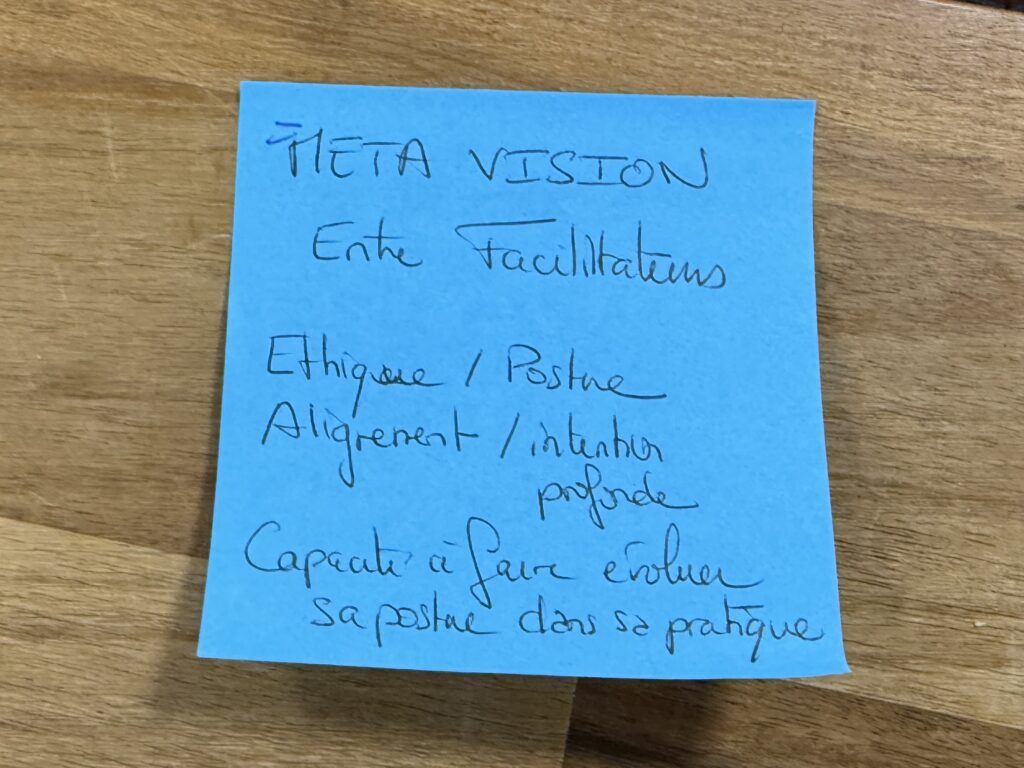 META VISION
Entre Facilitateurs
Ethique / Posture
Alignement / intention
profonde
Capacité à faire évoluer
sa posture dans sa pratique